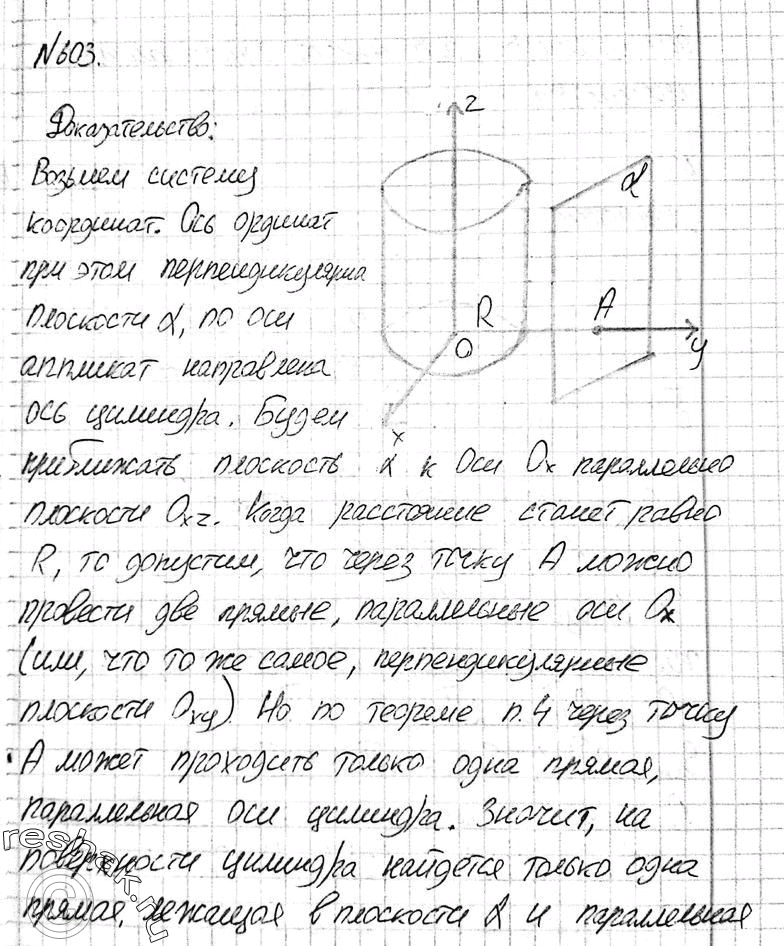 N603.
Доказательство:
Возьмем систему
координат. Ось ординат
при этом перпендикулярна
плоскости α, по оси
аппликат направлена
ось цилиндра. Будем
приближать плоскость α к оси Ox параллельно
плоскости Oxz. Когда расстояние станет равно
R, то допустим, что через точку A можно
провести две прямые, параллельные оси Ox
(или, что то же самое, перпендикулярные
плоскости Oxy) Но по теореме п.4 через точку
A может проходить только одна прямая,
параллельная оси цилиндра. Значит, на
поверхности цилиндра найдется только одна
прямая, лежащая в плоскости α и параллельная
z
α
R
A
O
y
x
reshak.ru